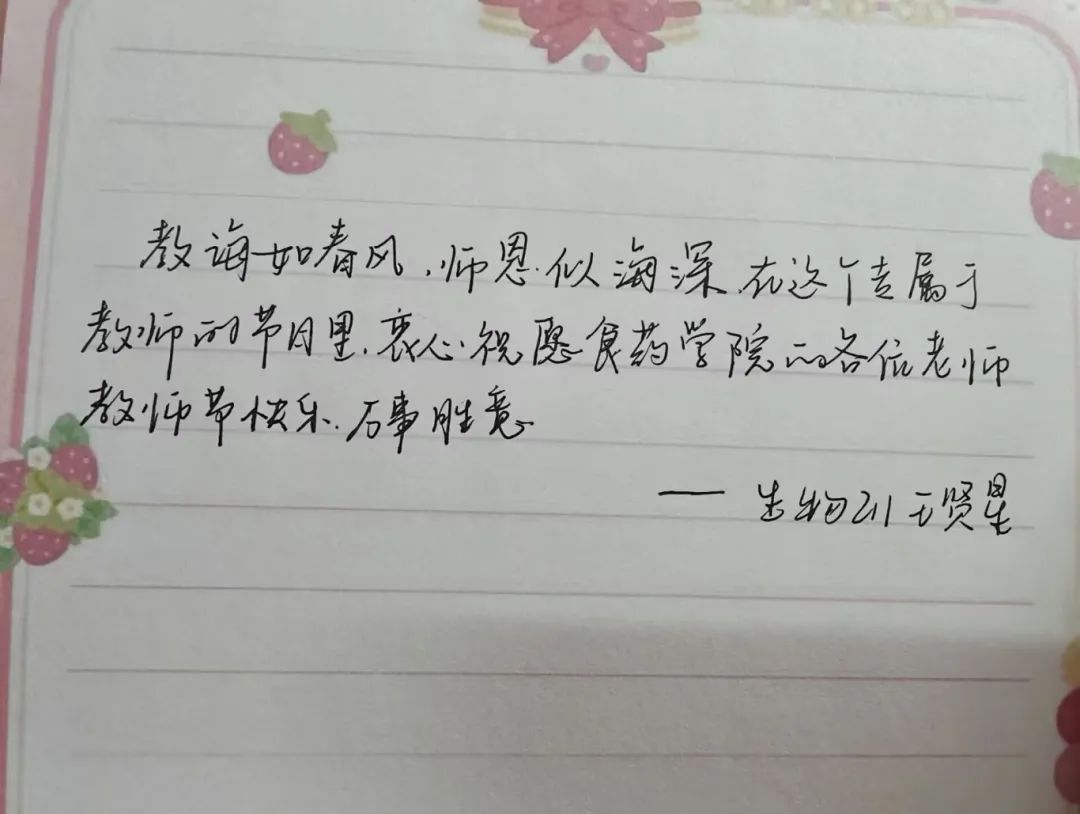 教诲如春风,师恩似海深.在这个专属于
教师的节日里,衷心祝愿食药学院的各位老师
教师节快乐.万事胜意.
—— 生物211 王贤星